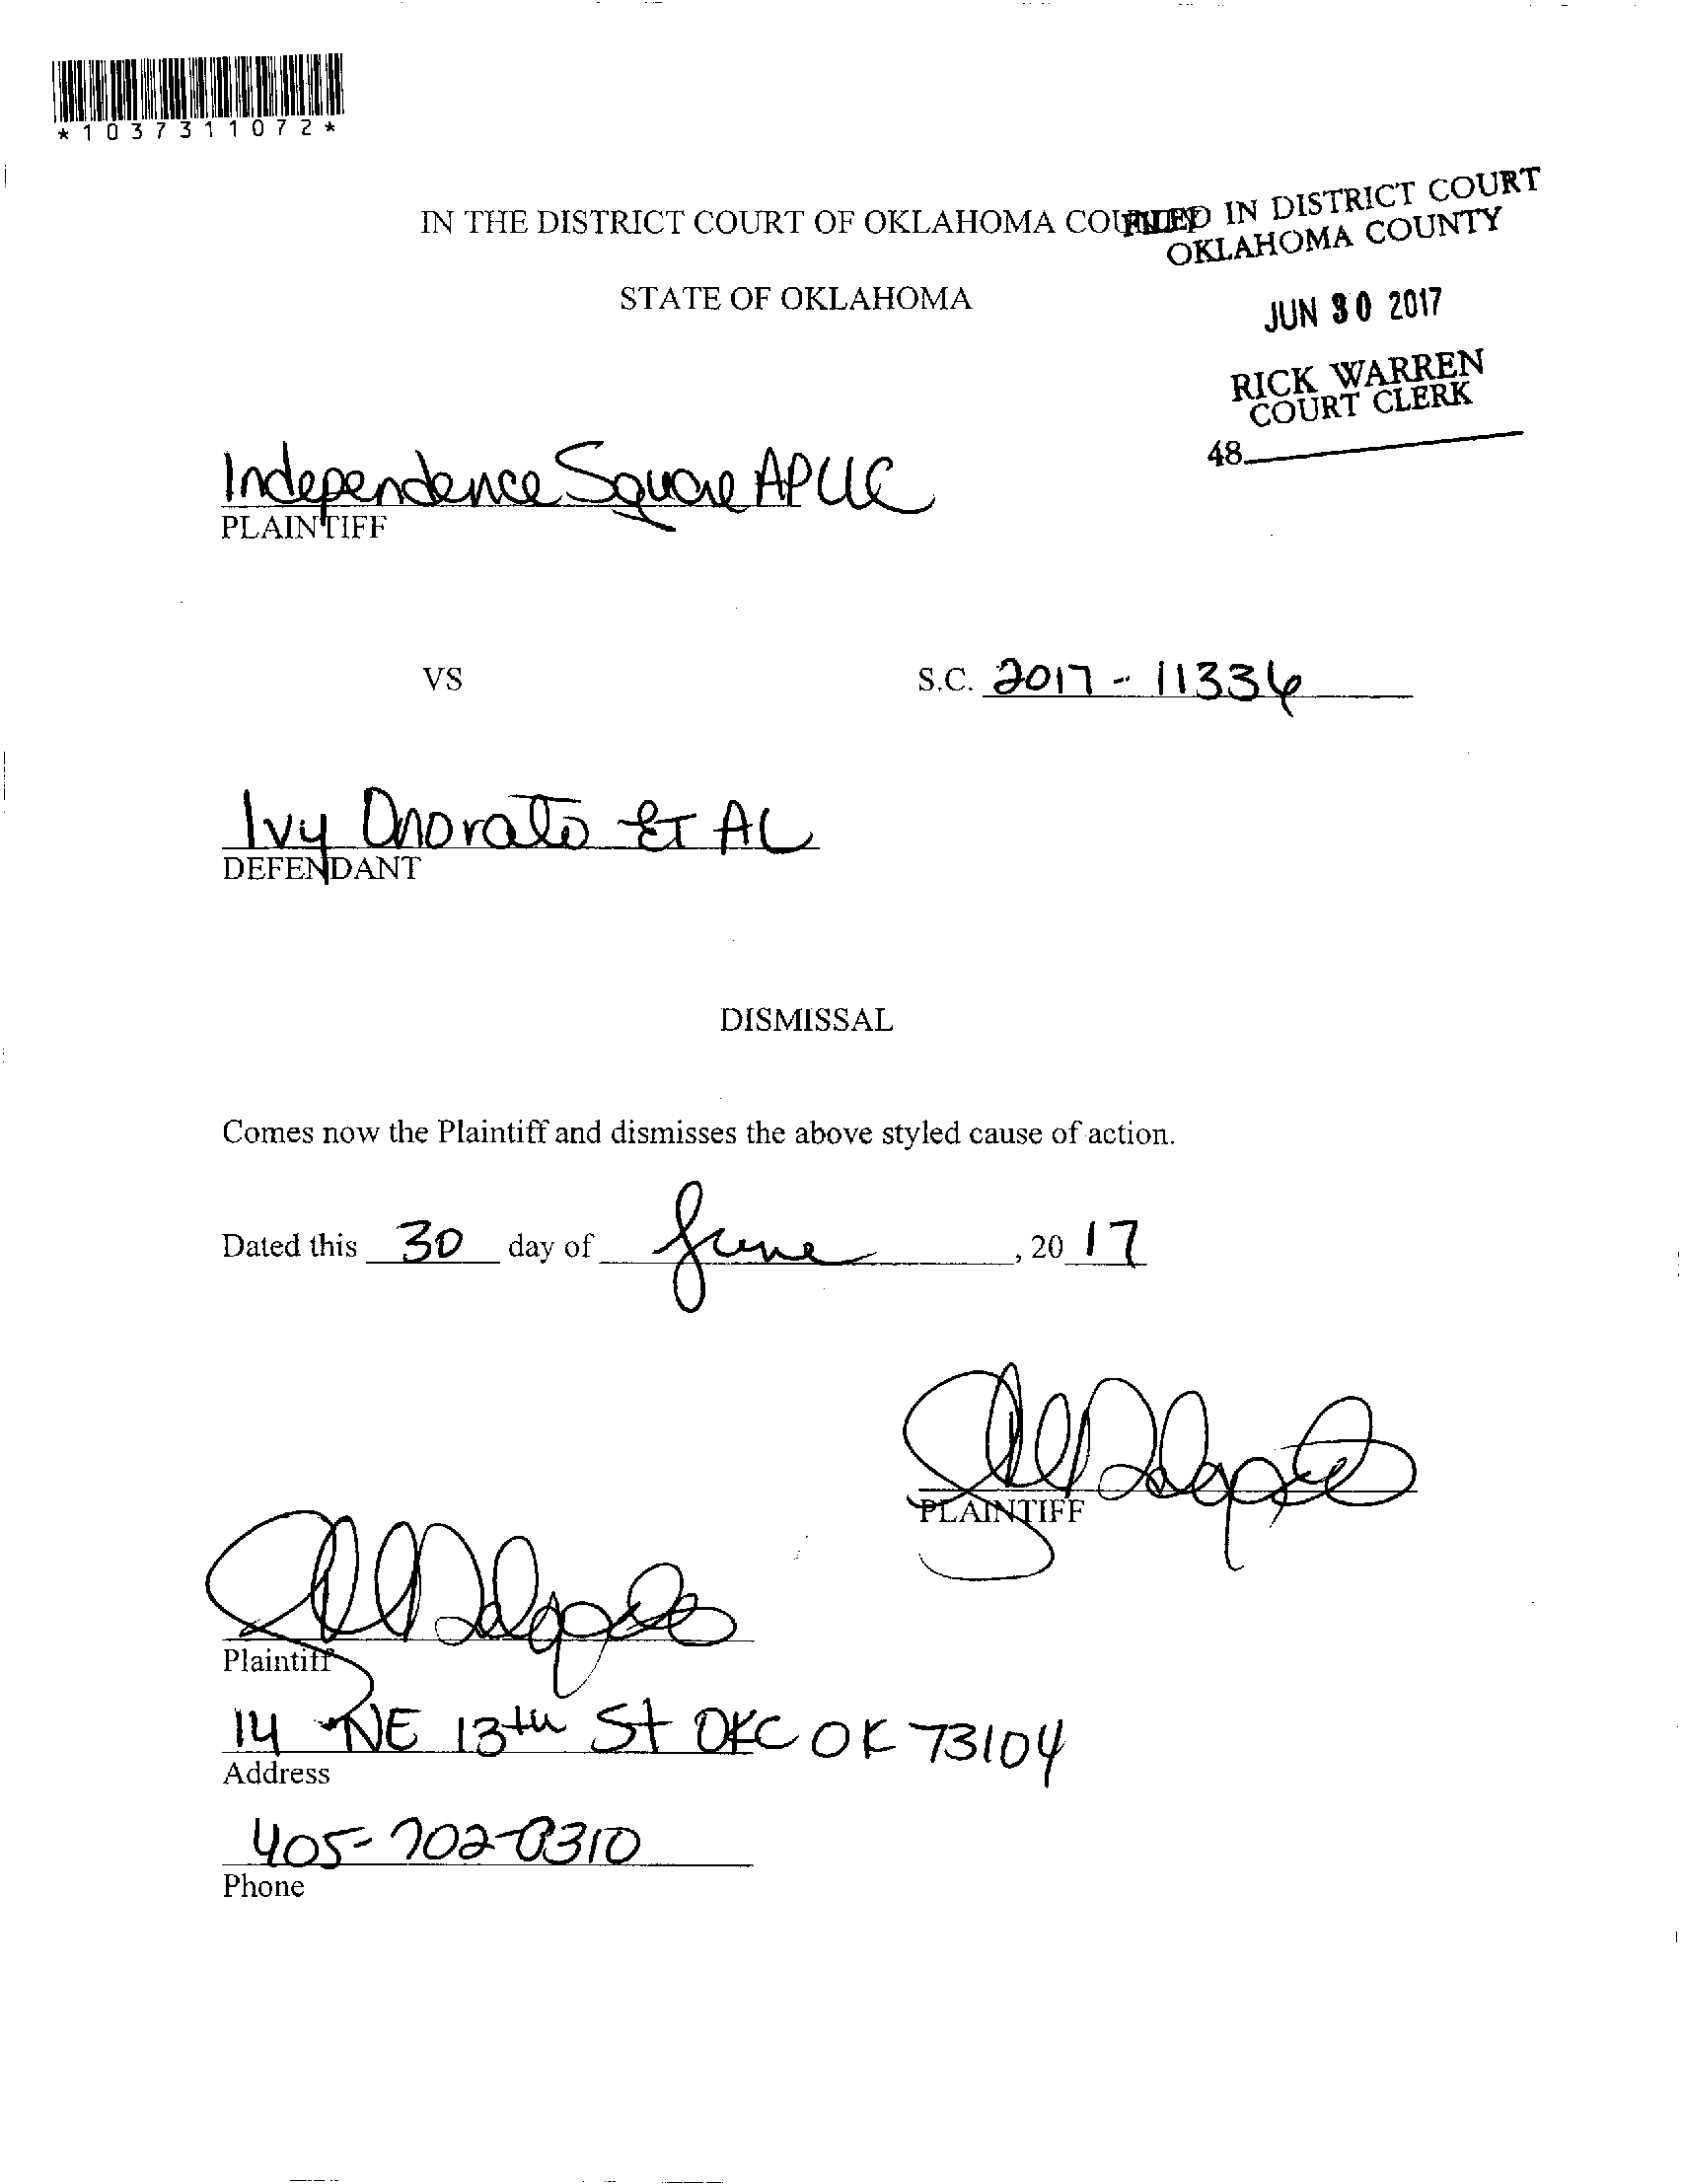 *1037311072*
IN THE DISTRICT COURT OF OKLAHOMA COUNTY
FILED IN DISTRICT COURT
OKLAHOMA COUNTY
STATE OF OKLAHOMA
JUN 30 2017
RICK WARREN
COURT CLERK
48
Independence Square AP LLC
PLAINTIFF
VS
S.C. 2017 - 11336
Ivy Onorato ET AL
DEFENDANT
DISMISSAL
Comes now the Plaintiff and dismisses the above styled cause of action.
Dated this 30 day of June, 20 17
PLAINTIFF
Plaintiff
14 NE 13th St OKC OK 73104
Address
405-702-0310
Phone